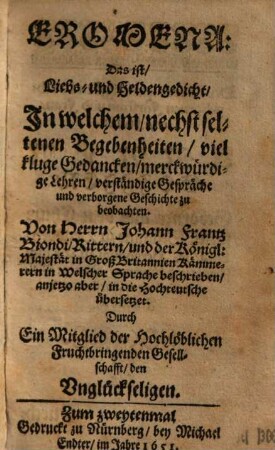 EROMENA:
Das ist/
Liebs- und Heldengedicht/
In welchem/ nechst sel-
tenen Begebenheiten/ viel
kluge Gedancken/ merckwürdi-
ge Lehren/ verständige Gespräche
und verborgene Geschichte zu
beobachten.
Von Herrn Johann Frantz
Biondi/ Rittern/ und der Königl:
Majestät in Groß Britannien Kämme-
rern in Welscher Sprache beschrieben/
anjetzo aber/ in die Hochteutsche
übersetzet.
Durch
Ein Mitglied der Hochlöblichen
Fruchtbringenden Gesell-
schafft/ den
Unglückseligen.
Zum zweytenmal
Gedruckt zu Nürnberg/ bey Michael
Endter/ im Jahre 1651.